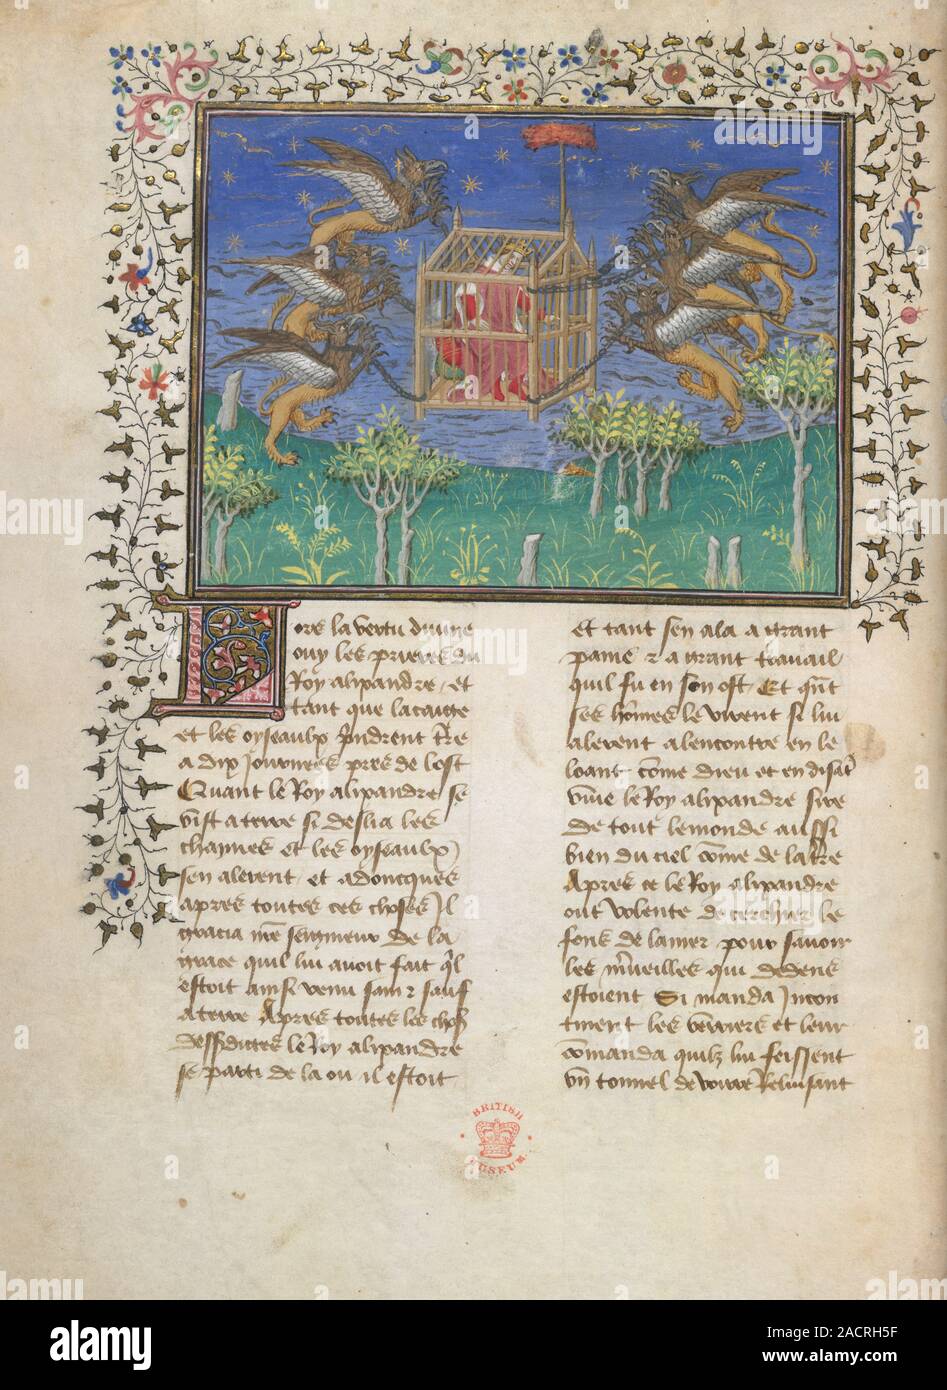 Lors la vertu divine
ouy les prieres du
Roy alixandre et
tant que la caige
et les oyseaulx prindrent tre
a dix journees pres de lost
Quant le Roy alixandre se
vist a terre si deslia les
chaynes et les oyseaulx
sen alerent et adoncques
apres toutes ces choses Il
gracia nre seigneur de la
grace quil lui avoit fait ql
estoit ainsi venu sain z sauf
a terre Apres toutes les choses
dessusdictes le Roy alixandre
se parti de la ou il estoit
Et tant sen ala a grant
paine z a grant travail
quil fu en son ost Et qnt
ses homes le virent si lui
alerent alencontre en le
loant come dieu et en disant
vive le Roy alixandre sire
de tout le monde aussi
bien du ciel come de la tre
Apres ce le Roy alixandre
out volente de cerchier le
fons de la mer pour savoir
les mveilles qui dedens
estoient Si manda Incon
tinent les verriers et leur
comanda quilz lui feissent
un tonnel de voirre Reluisant
BRITISH
MUSEUM
alamy
Image ID: 2ACRH5F
www.alamy.com